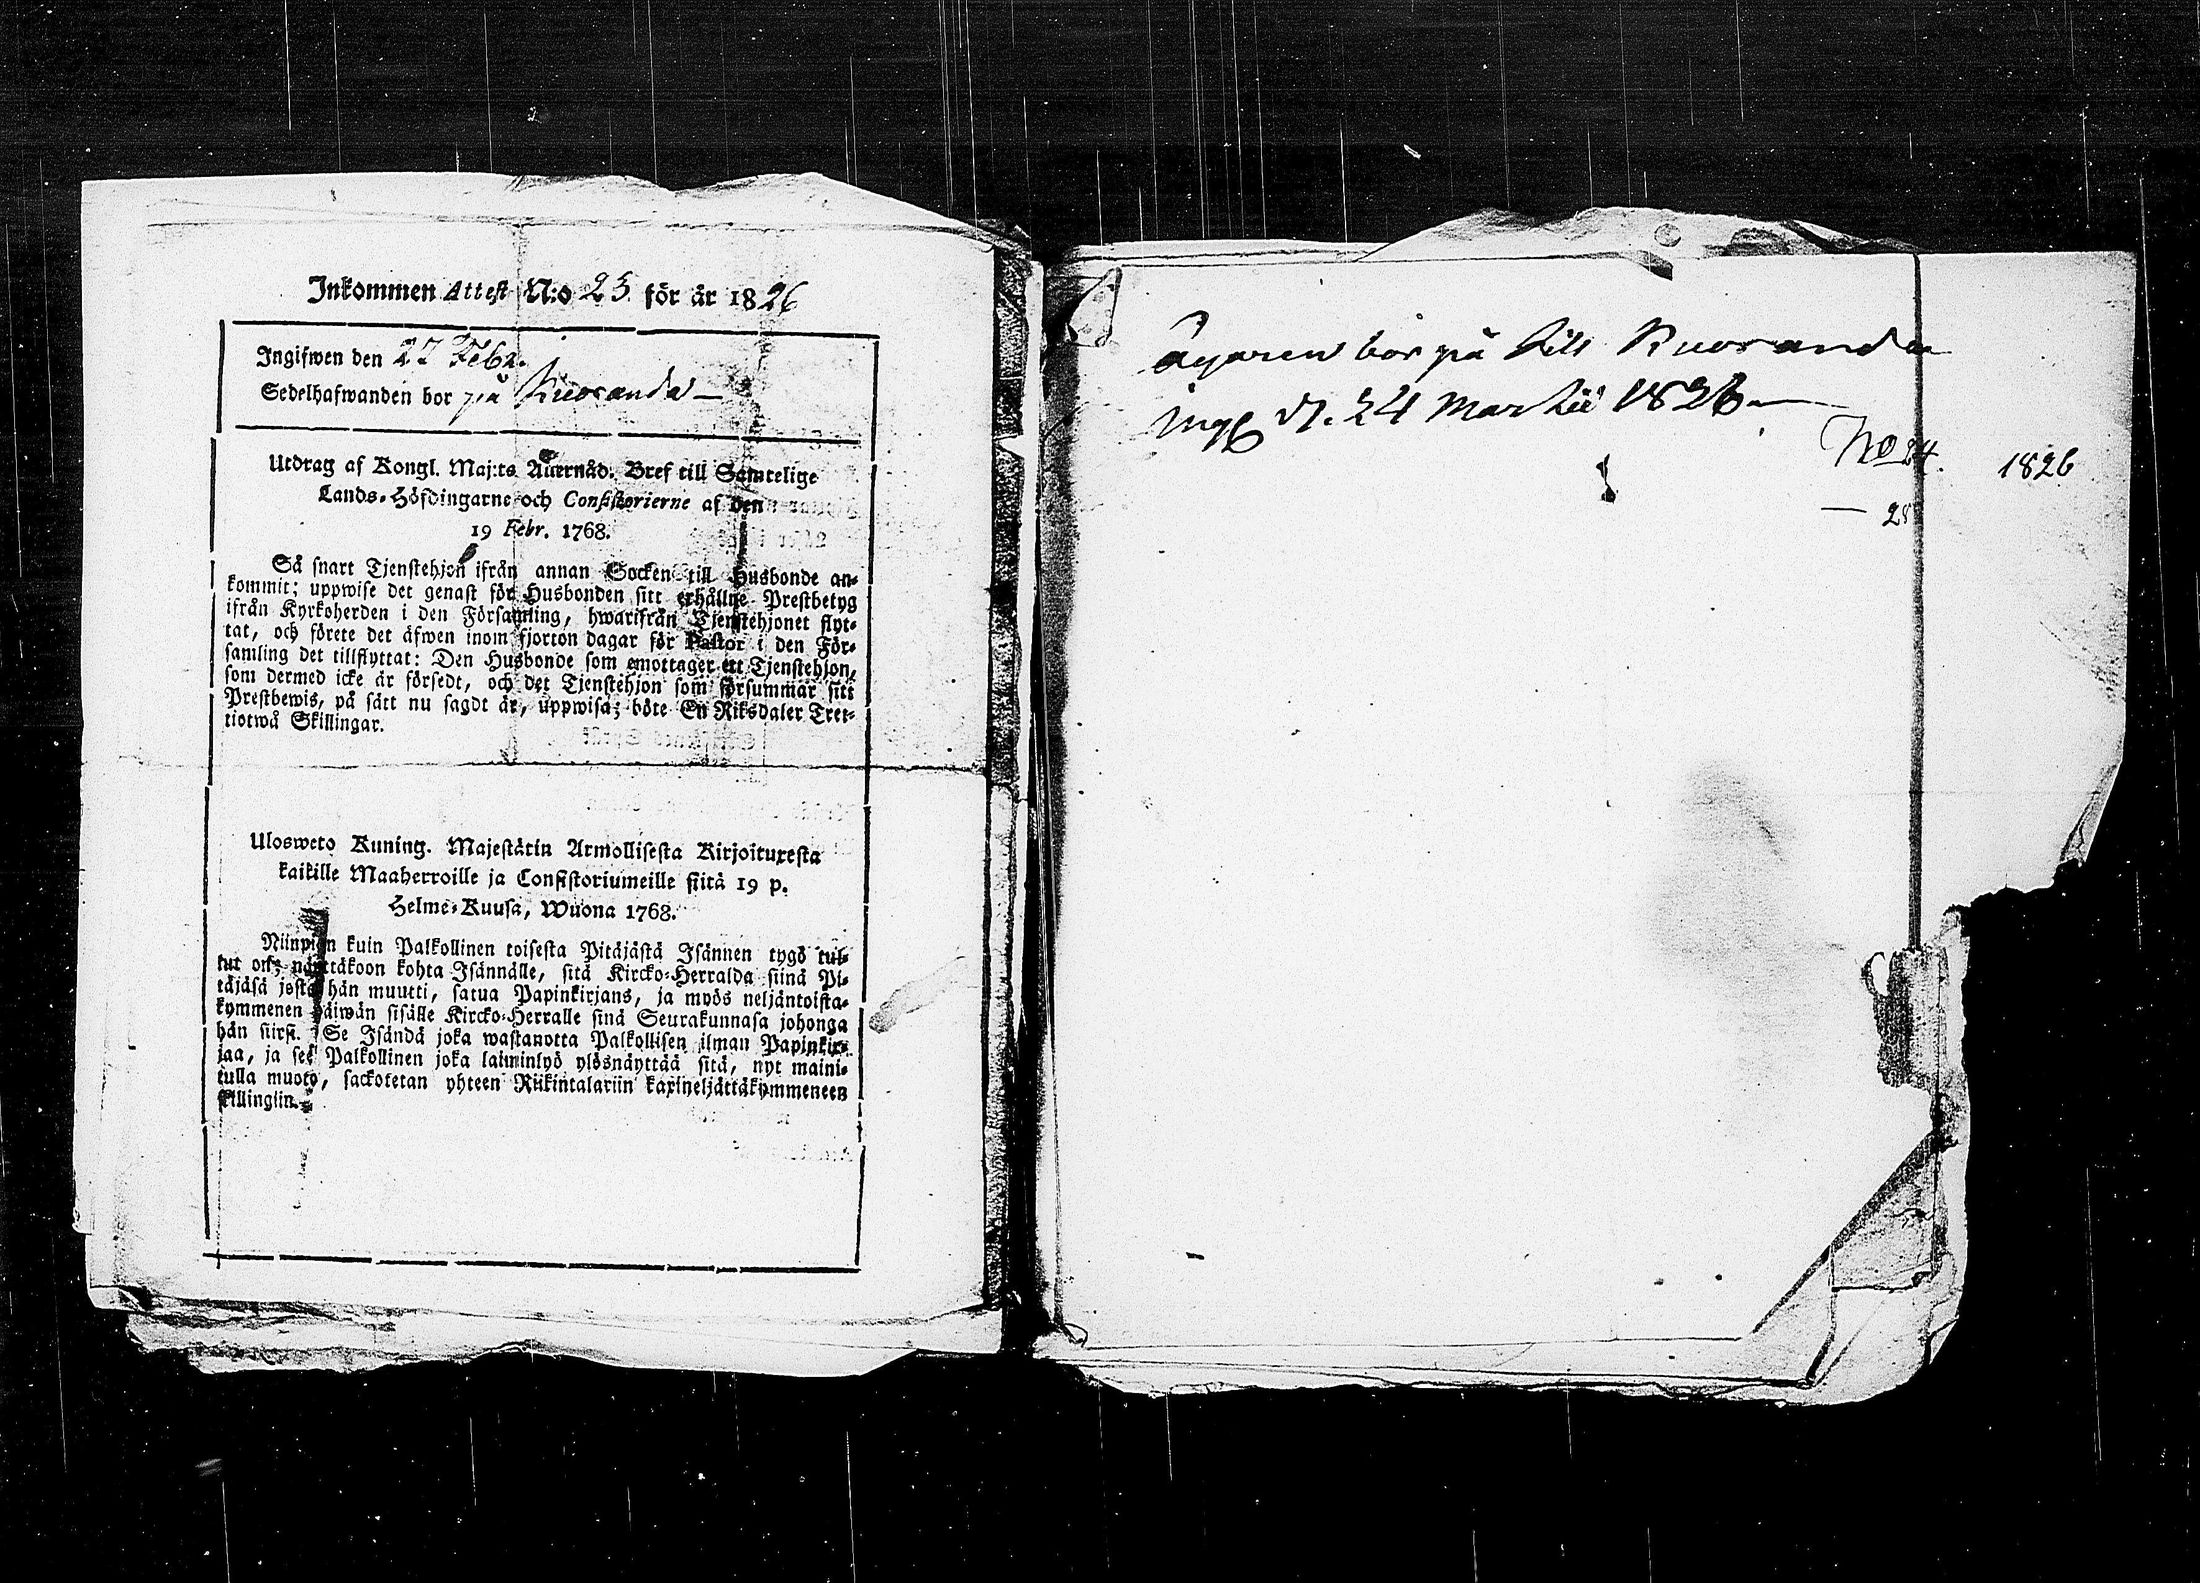 Inkommen Attest N:o 25 för år 1826
Ingifwen den 27 Febr.
Sedelhafwanden bor på Kuoranda
Utdrag af Kongl. Maj:ts Allernåd. Bref till Samtelige
Lands-Höfdingarne och Consistorierne af den
19 Febr. 1768.
Så snart Tjenstehjon ifrån annan Socken till Husbonde an-
kommit; uppwise det genast för Husbonden sitt erhållne Prestbetyg
ifrån Kyrkoherden i den Församling, hwarifrån Tjenstehjonet flyt-
tat, och förete det äfwen inom fjorton dagar för Pastor i den För-
samling det tillflyttat: Den Husbonde som emottager ett Tjenstehjon,
som dermed icke är försedt, och det Tjenstehjon som försummar sitt
Prestbewis, på sätt nu sagdt är, uppwisa; böte En Riksdaler Tret-
tiotwå Skillingar.
Ulosweto Kuning. Majestätin Armollisesta Kirjoituxesta
kaikille Maaherroille ja Consistoriumeille siitä 19 p.
Helme-Kuusa, Wuona 1768.
Niinpian kuin Palkollinen toisesta Pitäjästä Isännen tygö tul-
lut on; näyttäkoon kohta Isännälle, sitä Kircko-Herralda siinä Pi-
täjäsä josta hän muutti, satua Papinkirjans, ja myös neljäntoista-
kymmenen päiwän sisälle Kircko-Herralle sinä Seurakunnasa johonga
hän siirsi. Se Isändä joka wastanotta Palkollisen ilman Papinkir-
jaa, ja se Palkollinen joka laiminlyö ylösnäyttää sitä, nyt maini-
tulla muoto, sackotetan yhteen Riikintalariin kaxineljättäkymmeneen
skillingiin.
Ägaren bor på Kuoranda
ingf d. 24 Martii 1826
No 24. 1826
— 28